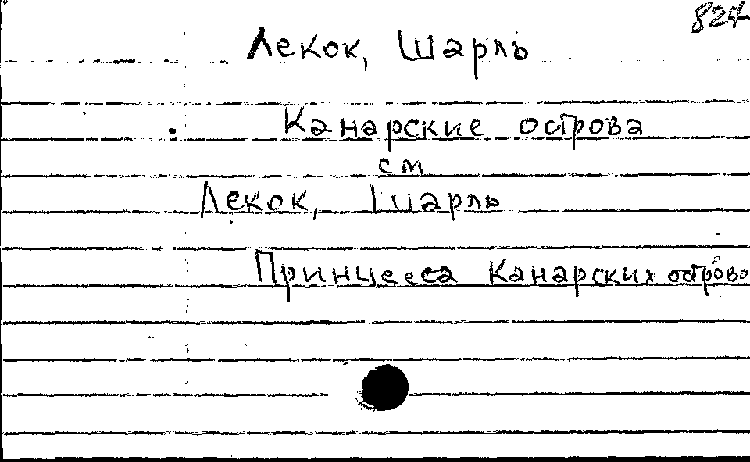 824
Лекок, Шарль
Канарские острова
см
Лекок, Шарль
Принцесса Канарских острово